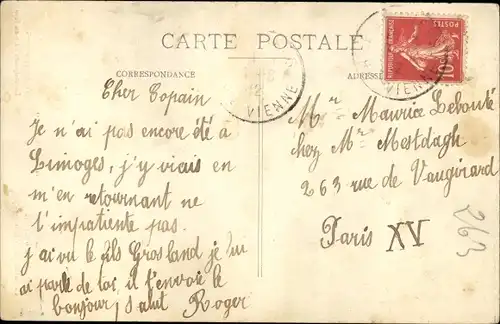 CARTE POSTALE
CORRESPONDANCE
Cher Copain
Je n'ai pas encore été à
Limoges, j'y viais en
m'en retournant ne
l'impatiente pas.
j'ai vu le fils Grosland je lui
ai parlé de toi, il t'envoie le
bonjour, Salut Roger
VIENNE
VIENNE
REPUBLIQUE FRANÇAISE
POSTES
10
ADRESSE
Mr Maurice Lebouté
chez Mr Mestdagh
263 rue de Vaugirard
Paris XV
263